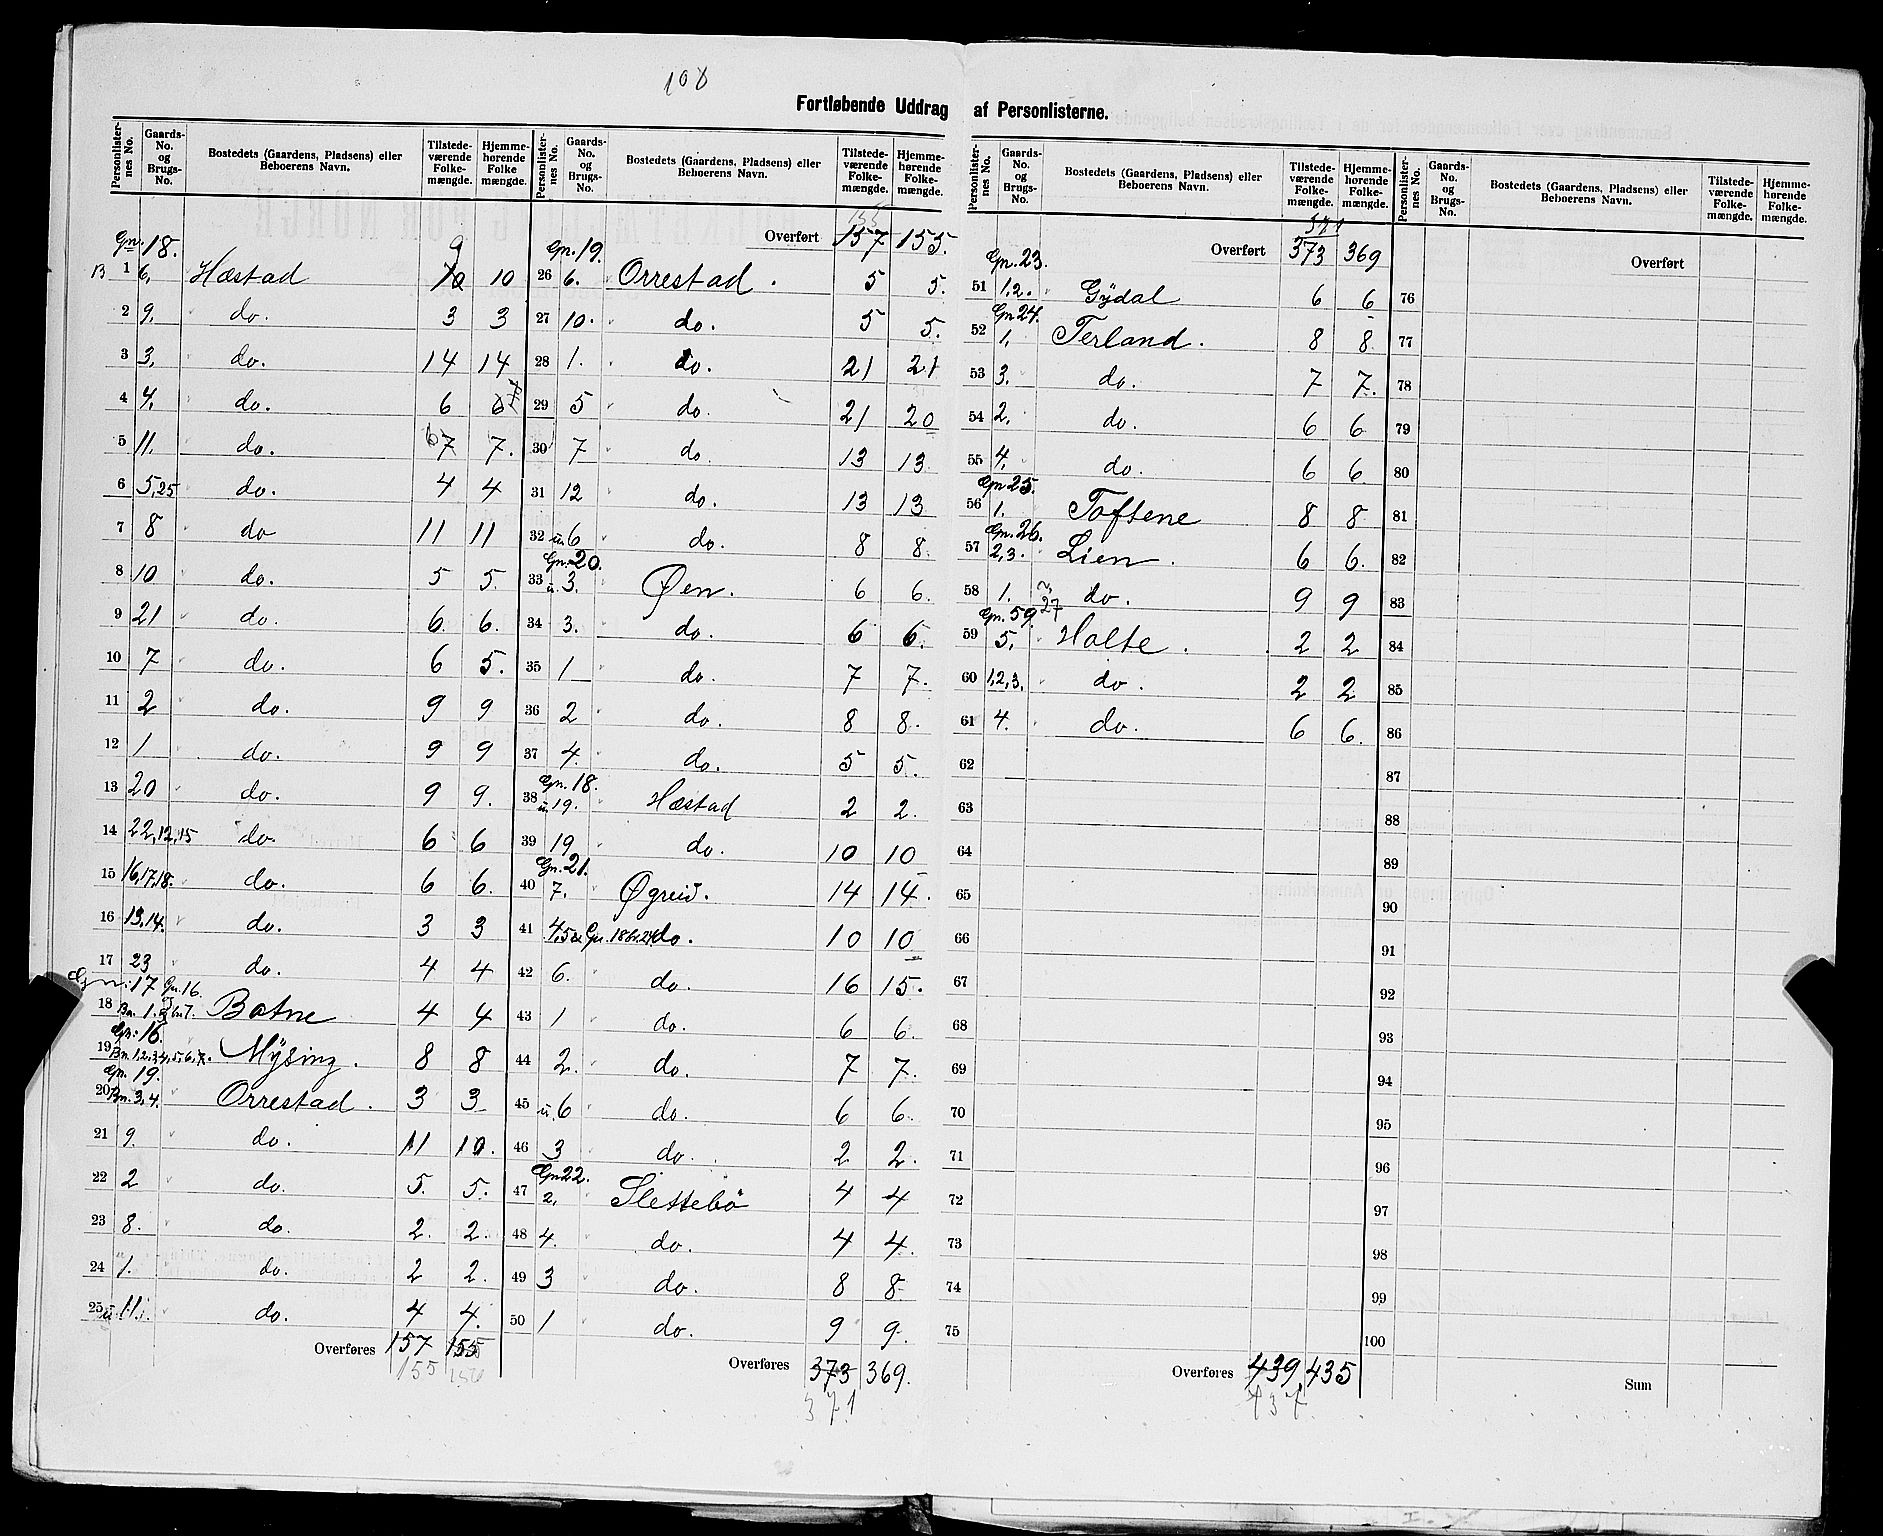 108
Fortløbende Uddrag af Personlisterne.
Personlister-nes No. Gaards-No. og Brugs-No. Bostedets (Gaardens, Pladsens) eller Beboerens Navn. Tilstede-værende Folke-mængde. Hjemme-hørende Folke mængde.
Gn. 18. 9
13 1 6. Hæstad 10 10
2 9. " do. 3 3
3 3. " do. 14 14
4 4. " do. 6 6 7
5 11. " do. 6 7 7.
6 5,25 " do. 4 4
7 8 " do 11 11
8 10 " do. 5 5.
9 21 " do. 6. 6.
10 7 " do. 6 5.
11 2 " do. 9 9
12 1 " do. 9 9
13 20 " do. 9 9.
14 22,12,15 do. 6 6
15 16,17,18. do. 6 6.
16 13,14. " do. 3 3
17 23 " do. 4 4
Gn: 17 Gn. 16.
18 Bn. 1. & bn 7. Botne 4 4
Gn: 16.
19 Bn. 1,2,3,4,5,6,7. Mÿsing. 8 8
Gn. 19.
20 Bn. 3,4. Orrestad. 3 3
21 9. " do. 11 10.
22 2 " do. 5. 5.
23 8. " do. 2. 2.
24 1. " do. 2 2.
25 u. 11. " do. 4 4.
Overføres 157 155
155 156
Personlister-nes No. Gaards-No. og Brugs-No. Bostedets (Gaardens, Pladsens) eller Beboerens Navn. Tilstede-værende Folke-mængde. Hjemme-hørende Folke-mængde.
155
Gn. 19. Overført 157 155.
26 6. " Orrestad. 5 5.
27 10. " do. 5 5.
28 1. " do. 21 21
29 5 " do. 21 20
30 7 " do. 13 13.
31 12 " do. 13 13
32 u. 6 " do. 8 8.
Gn. 20.
33 u. 3. " Øen. 6 6.
34 3. " do. 6 6.
35 1 " do. 7 7.
36 2 " do. 8 8.
37 4. " do. 5 5.
Gn. 18.
38 u. 19. " Hæstad 2 2.
39 19 " do. 10 10
Gn. 21.
40 7. " Øgreid. 14 14.
41 4,5 & Gn. 18 bn. 24 do. 10 10
42 6. " do. 16 15.
43 1 " do. 6 6.
44 2. " do. 7 7.
45 u. 6 " do. 6 6.
46 3 " do. 2 2.
Gn 22.
47 2. " Slettebö 4 4
48 4. " do. 4 4.
49 3 " do. 8 8.
50 1 " do. 9 9.
Overføres 373 369.
371
Personlister-nes No. Gaards-No. og Brugs-No. Bostedets (Gaardens, Pladsens) eller Beboerens Navn. Tilstede-værende Folke-mængde. Hjemme-hørende Folke-mængde.
371
Gn. 23. Overført 373 369
51 1,2. " Gÿdal 6 6
Gn 24.
52 1. Terland. 8 8
53 3. " do. 7 7.
54 2. " do. 6 6
55 4. " do. 6 6
Gn 25.
56 1. Toftene 8 8
Gn. 26.
57 2,3. " Lien. 6 6.
58 1. 27 do. 9 9
Gn. 59.
59 5. " Holte. 2 2
60 1,2,3. " do. 2 2
61 4. " do. 6 6.
62
63
64
65
66
67
68
69
70
71
72
73
74
75
Overføres 439 435
437
Personlister-nes No. Gaards-No. og Brugs-No. Bostedets (Gaardens, Pladsens) eller Beboerens Navn. Tilstede-værende Folke-mængde. Hjemme-hørende Folke-mængde.
Overført
76
77
78
79
80
81
82
83
84
85
86
87
88
89
90
91
92
93
94
95
96
97
98
99
100
Sum